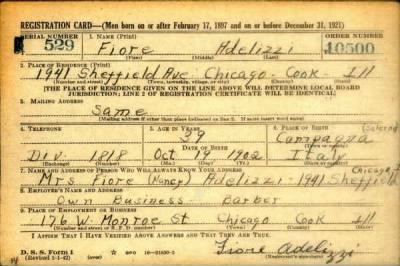 REGISTRATION CARD—(Men born on or after February 17, 1897 and on or before December 31, 1921)
SERIAL NUMBER 1. NAME (Print) ORDER NUMBER
529 Fiore Adelizzi 10500
(First) (Middle) (Last)
2. PLACE OF RESIDENCE (Print)
1941 Sheffield Ave Chicago - Cook - Ill
(Number and street) (Town, township, village, or city) (County) (State)
[THE PLACE OF RESIDENCE GIVEN ON THE LINE ABOVE WILL DETERMINE LOCAL BOARD
JURISDICTION; LINE 2 OF REGISTRATION CERTIFICATE WILL BE IDENTICAL]
3. MAILING ADDRESS
Same
[Mailing address if other than place indicated on line 2. If same insert word same]
4. TELEPHONE 5. AGE IN YEARS 6. PLACE OF BIRTH
39 Campagna (Salerno)
DATE OF BIRTH (Town or county)
Div. 1818 Oct 19 1902 Italy
(Exchange) (Number) (Mo.) (Day) (Yr.) (State or country)
7. NAME AND ADDRESS OF PERSON WHO WILL ALWAYS KNOW YOUR ADDRESS Chicago Ill
Mrs Fiore (Nancy) Adelizzi - 1941 Sheffield
8. EMPLOYER'S NAME AND ADDRESS
Own Business - Barber
9. PLACE OF EMPLOYMENT OR BUSINESS
176 W. Monroe St Chicago Cook Ill
(Number and street or R. F. D. number) (Town) (County) (State)
I AFFIRM THAT I HAVE VERIFIED ABOVE ANSWERS AND THAT THEY ARE TRUE.
D. S. S. Form 1
(Revised 1-1-42) (over) 16-21630-2 Fiore Adelizzi